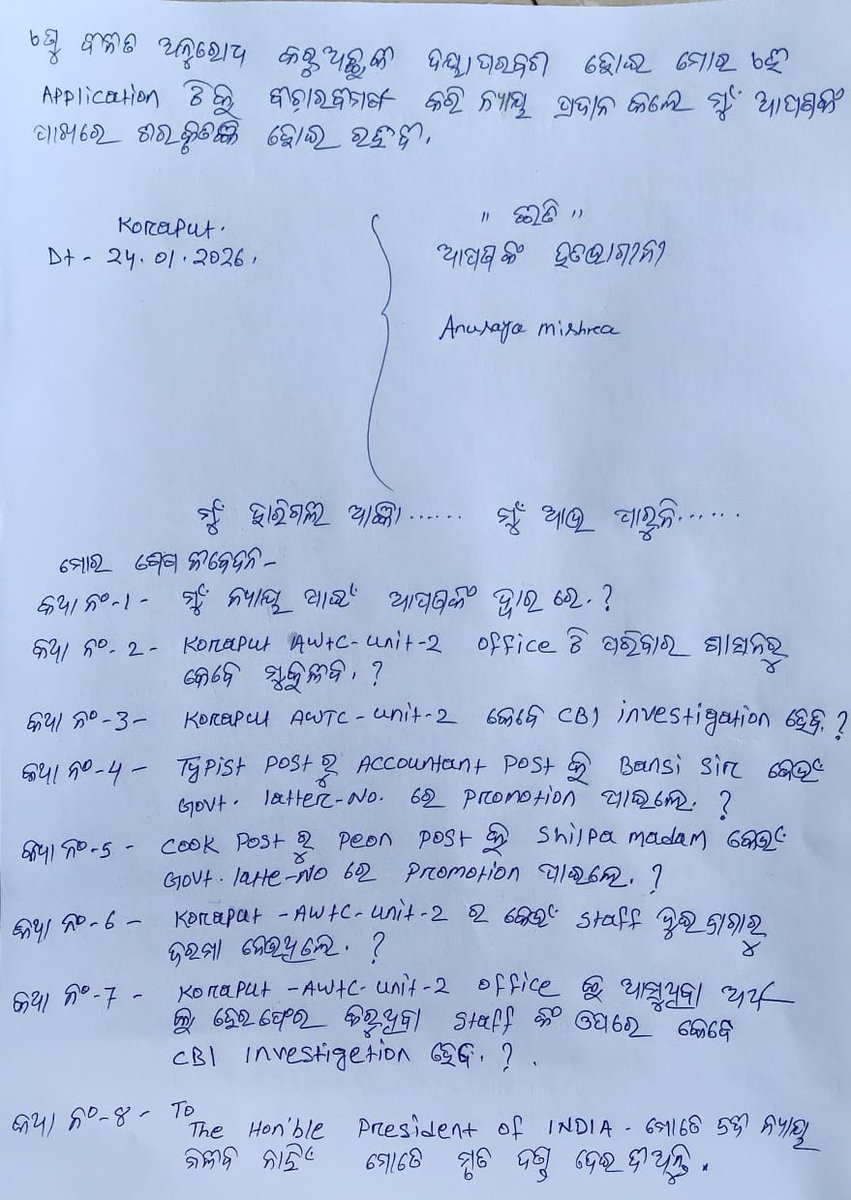 ତେଣୁ ବିନୀତ ଅନୁରୋଧ କରୁଅଛୁକି ଦୟାପରବଶ ହୋଇ ମୋର ଏହି
Application ଟିକୁ ବିଚାରବିମର୍ଷ କରି ନ୍ୟାୟ ପ୍ରଦାନ କଲେ ମୁଁ ଆପଣଙ୍କ
ପାଖରେ ହୋଇ ରହିବି.
Koraput.
Dt - 24.01.2026.
" ଇତି "
ଆପଣଙ୍କ ହତଭାଗୀନୀ
Anusaya mishra
ମୁଁ ହାରିଗଲି ଆଜ୍ଞା...... ମୁଁ ଆଉ ପାରୁନି......
ମୋର ଶେଷ ନିବେଦନ -
କଥା ନଂ-1- ମୁଁ ନ୍ୟାୟ ପାଇଁ ଆପଣଙ୍କ ଦ୍ୱାର ରେ.?
କଥା ନଂ- 2- Koraput AWTC-unit-2 office ଟି ପରିବାର ଶାସନରୁ
କେବେ ମୁକୁଳିବ.?
କଥା ନଂ-3- Koraput AWTC-unit-2 କେବେ CBI investigation ହେବ.?
କଥା ନଂ-4- Typist post ରୁ Accountant post କୁ Bansi Sir କେଉଁ
Govt. latter-No. ରେ promotion ପାଇଲେ.?
କଥା ନଂ-5- Cook post ରୁ peon post କୁ Shilpa madam କେଉଁ
Govt. latte-No ରେ promotion ପାଇଲେ.?
କଥା ନଂ-6- Koraput -AWTC-unit-2 ର କେଉଁ staff ଦୁଇ ଜାଗାରୁ
ଦରମା ନେଉଥିଲେ.?
କଥା ନଂ-7- Koraput -AWTC-unit-2 office କୁ ଆସୁଥିବା ଅର୍ଥ
କୁ ହେରଫେର କରୁଥିବା staff ଙ୍କ ଉପରେ କେବେ
CBI Investigetion ହେବ.?.
କଥା ନଂ-8- To
The Hon'ble President of INDIA - ମୋତେ ନ୍ୟାୟ
ମିଳିବ ନାହିଁ ମୋତେ ମୃତ ଦଣ୍ଡ ଦେଇ ଦିଅନ୍ତୁ.